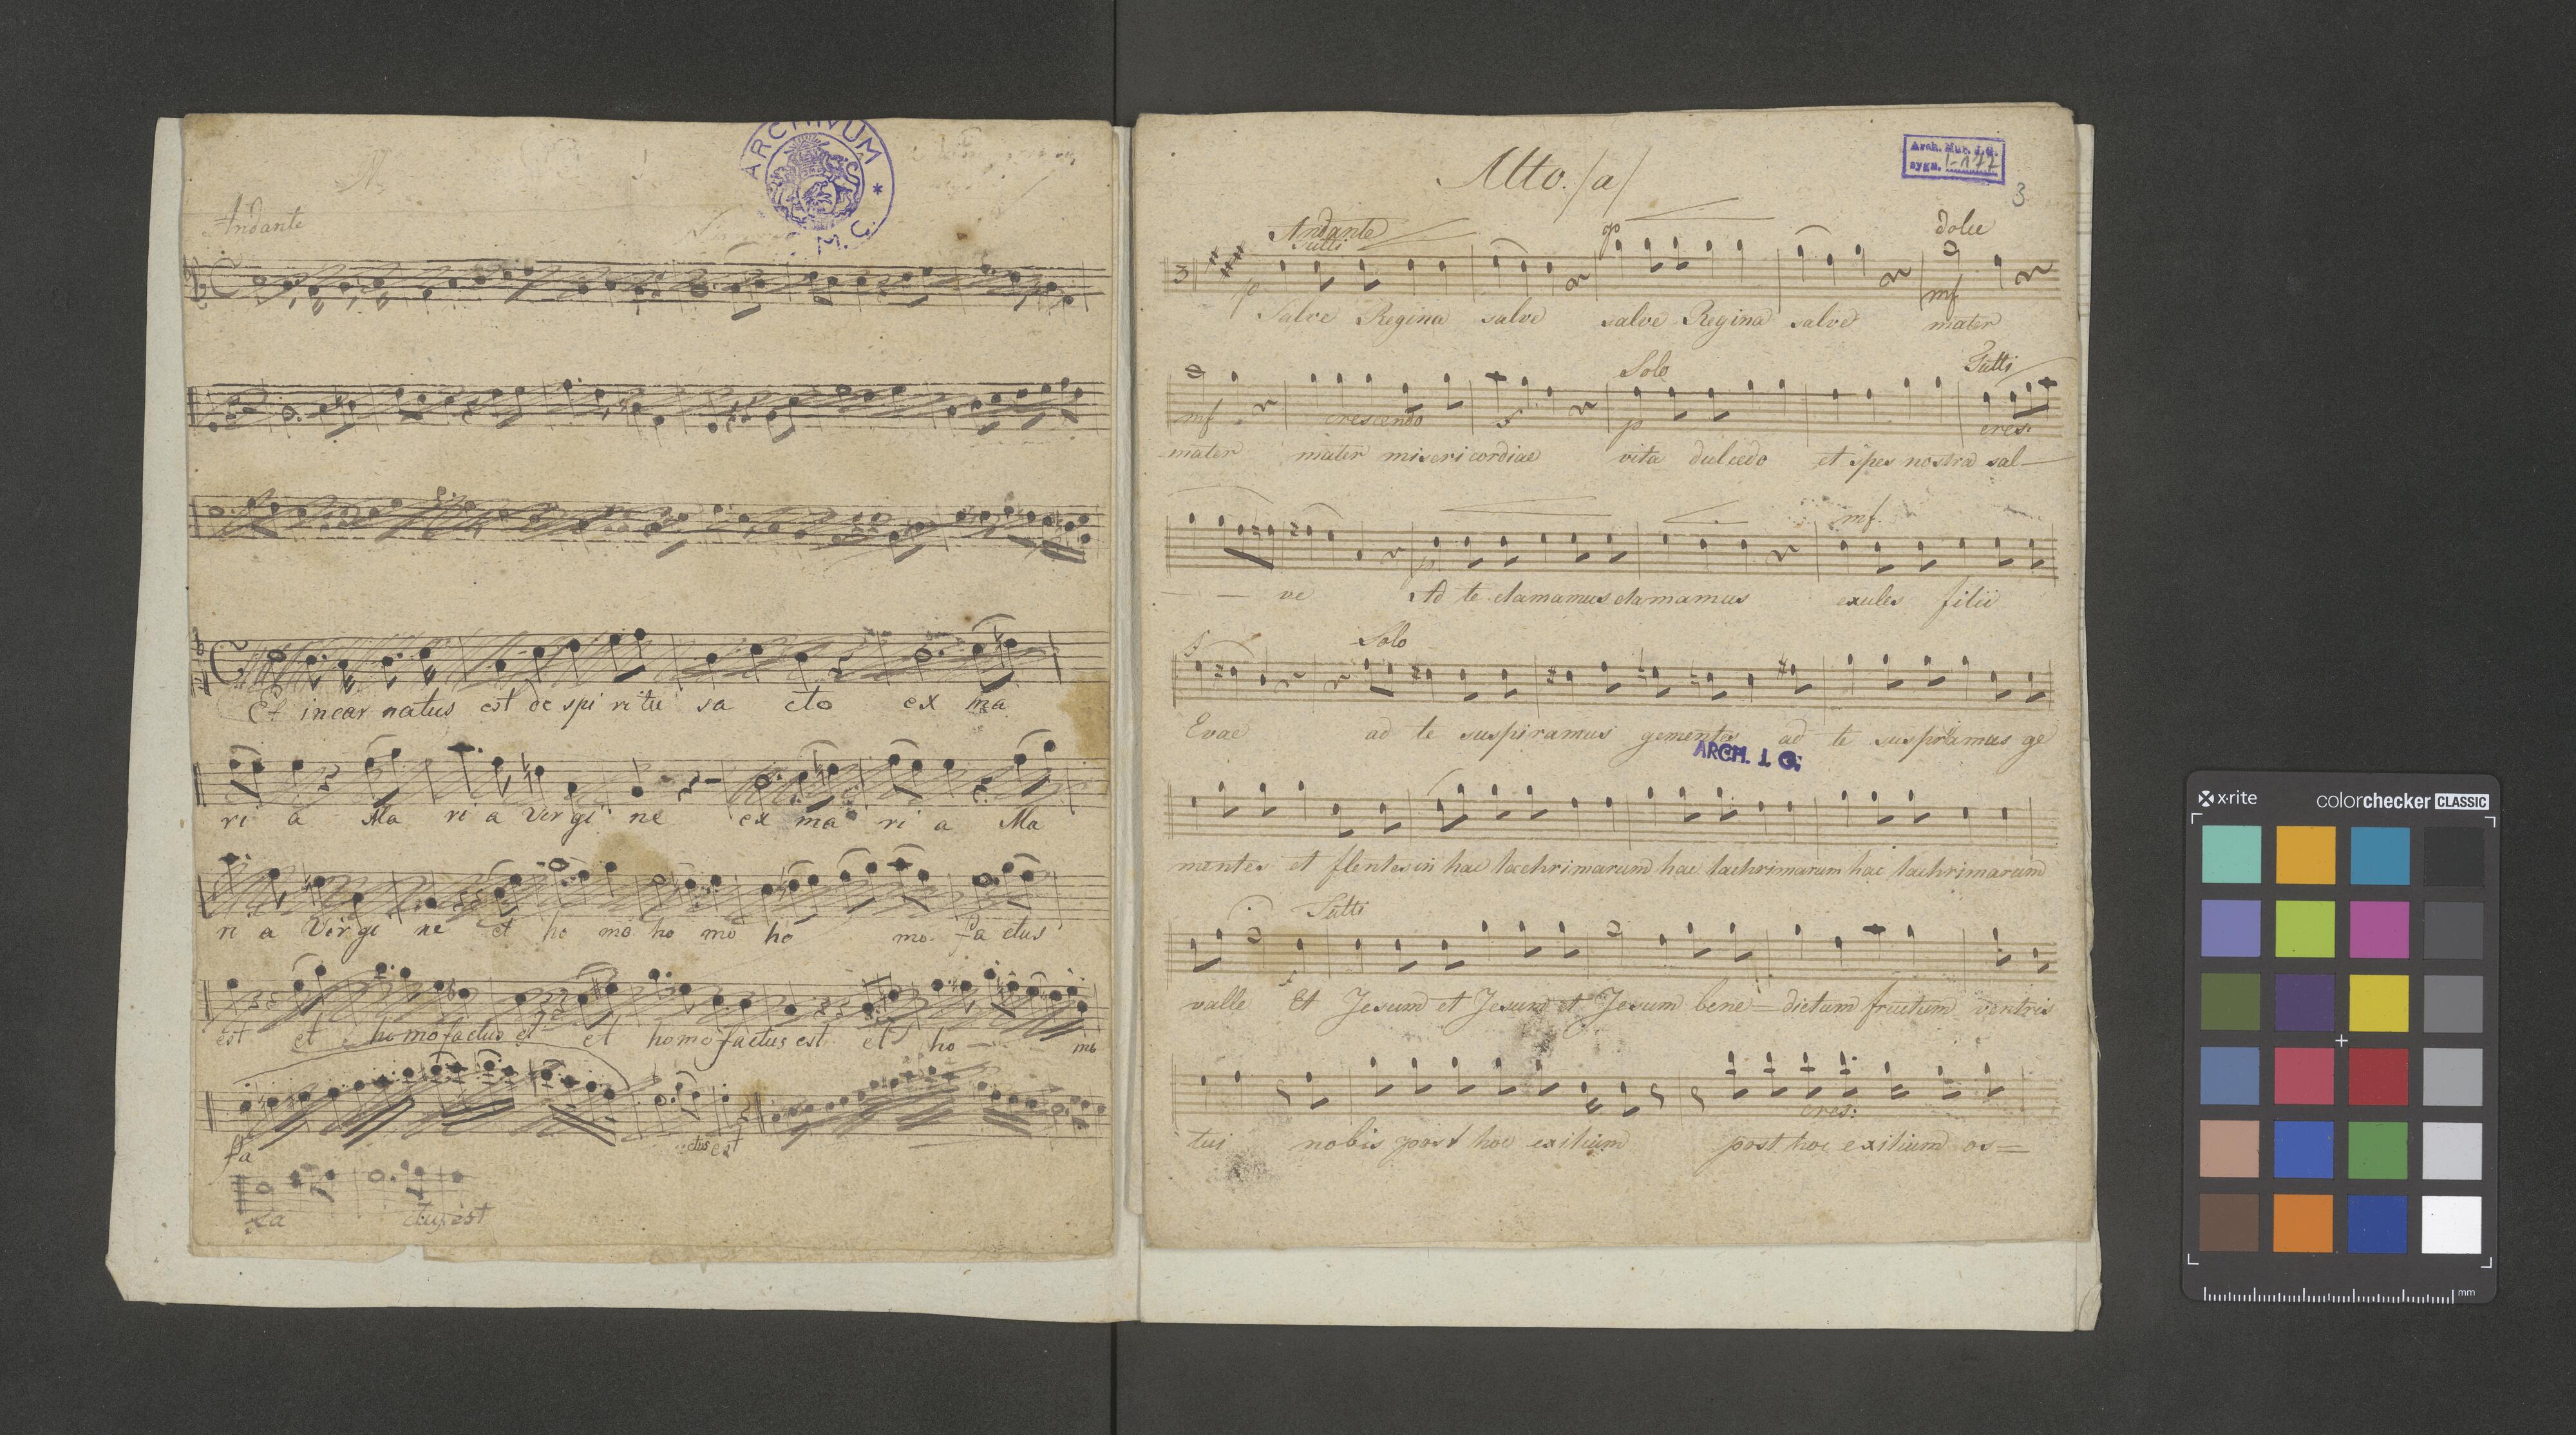 ARCHIVUM * M. C.
Andante
Et incar natus est de spi ritu sa cto ex ma
ri a Ma ri a Vir gi ne ex ma ri a Ma
ri a Vir gi ne et ho mo ho mo ho mo fa ctus
est et homo factus est et homo factus est et ho - mo
fa ctus est
fa ctus est
Alto. /a/
Arch. Muz. J. G.
sygn. I-177
3
Andante
Tutti p dolce
3 p mf
Salve Regina salve salve Regina salve mater
Solo Tutti
mf crescendo f p cres:
mater mater misericordiae vita dulcedo et spes nostra sal-
mf
p
- - ve Ad te clamamus clamamus exules filii
f Solo
Evae ad te suspiramus gementes ad te suspiramus ge
ARCH. J. G.
mentes et flentes in hac lachrimarum hac lachrimarum hac lachrimarum
Tutti
f
valle Et Jesum et Jesum et Jesum bene - dictum fructum ventris
cres:
tui nobis post hoc exilium post hoc exilium os=
x-rite colorchecker CLASSIC
mm